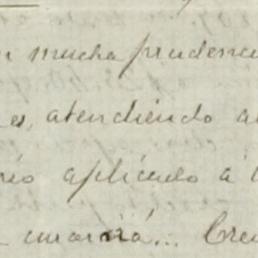 n mucha prudenc
es, atendiendo a
rio aplicado a l
curaría... Cre